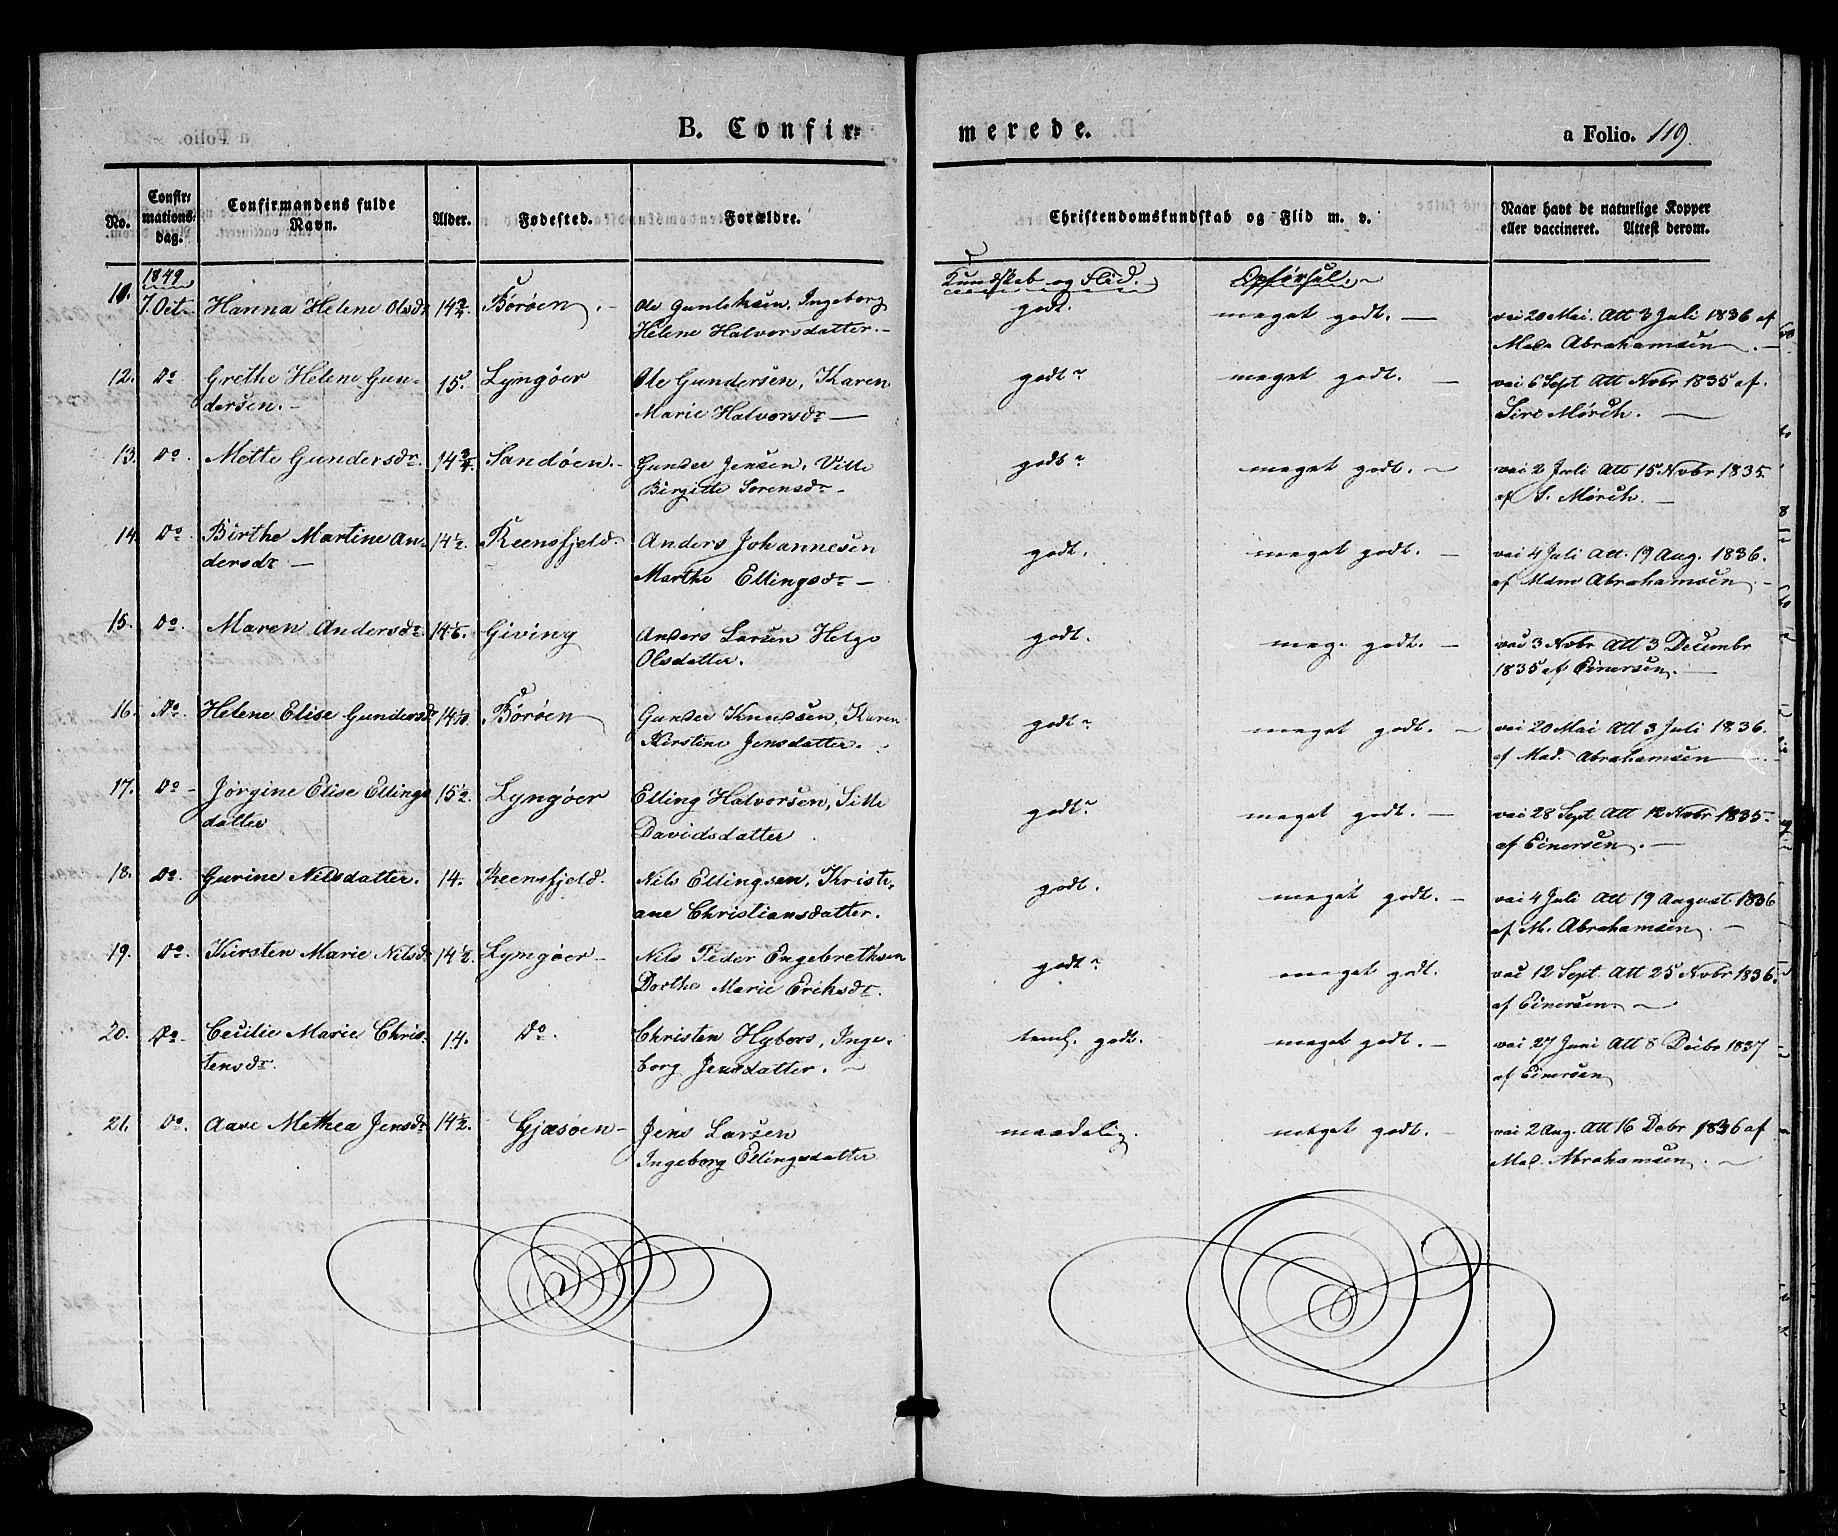 B. Confir- merede. a Folio. 119.
No. Confir-mations-dag. Confirmandens fulde Navn. Alder. Fødested. Forældre. Christendomskundskab og Flid m. v. Naar havt de naturlige Kopper eller vaccineret. Attest derom.
1849 Kundskab og Flid. Opførsel.
11. 7. Oct. Hanna Helene Olsdr 14 2/4 Böröen Ole Gunleksen, Ingeborg godt. meget godt. vai 20 Mai. Att 3 Juli 1836 af
Helene Halvorsdatter. Mad. Abrahamsen
12. Do Grethe Helene Gun- 15. Lyngöer Ole Gundersen, Karen godt meget godt. vai 6 Sept Att Novbr 1835 af.
dersen. Marie Halvorsdr Sire Mörch.
13. Do. Mette Gundersdr. 14 3/4. Sandöen. Gunder Jensen, Vitte godt meget godt. vai 2 Juli Att 15 Novbr 1835
Birgitte Sørensdr af S. Mörch.
14. Do Birthe Martine An- 14 1/2. Reensfjeld. Anders Johannesen godt. meget godt. vai 4 Juli Att. 19 Aug. 1836.
dersdr Marthe Ellingsdr af Mdm Abrahamsen
15. Do. Maren Andersdr. 14 1/6. Giving Anders Larsen Helge godt. meg. godt. vai 3 Novbr Att 3 Decembr
Olsdatter. 1835 af Einersen.
16. Do. Helene Elise Gundersdr 14 1/10. Böröen Gunder Knudsen, Karen godt meget godt. vai 20 Mai Att 3 Juli 1836.
Kirstine Jensdatter. af Mad. Abrahamsen
17. Do Jørgine Elise Ellings 15 1/2. Lyngöer Elling Halvorsen, Sille godt meget godt. vai 28 Sept Att 12 Novbr 1835.
datter Davidsdatter af Einersen.
18. Do. Gurine Nilsdatter. 14. Reensfjeld. Nils Ellingsen, Kristi- godt. meget godt. vai 4 Juli Att 19 August 1836
ane Christiansdatter. af M. Abrahamsen.
19. Do. Kirsten Marie Nilsdr 14 1/2. Lyngöer Nils Peder Engebrethsen godt meget godt. vai 12 Sept. Att 25 Novbr 1836.
Dorthe Marie Eriksdr. af Einersen
20. Do Cecilie Marie Chris- 14. Do. Christen Hybers, Inge- teml. godt. meget godt. vai 27 Juni Att 8 Decbr 1837
tensdr. borg Jensdatter. af Einersen
21. Do. Aase Methea Jensdr 14 1/2. Gjæsöen Jens Larsen maadelig. meget godt. vai 2 Aug. Att 16 Debr 1836 af
Ingeborg Ellingsdatter Mad. Abrahamsen.